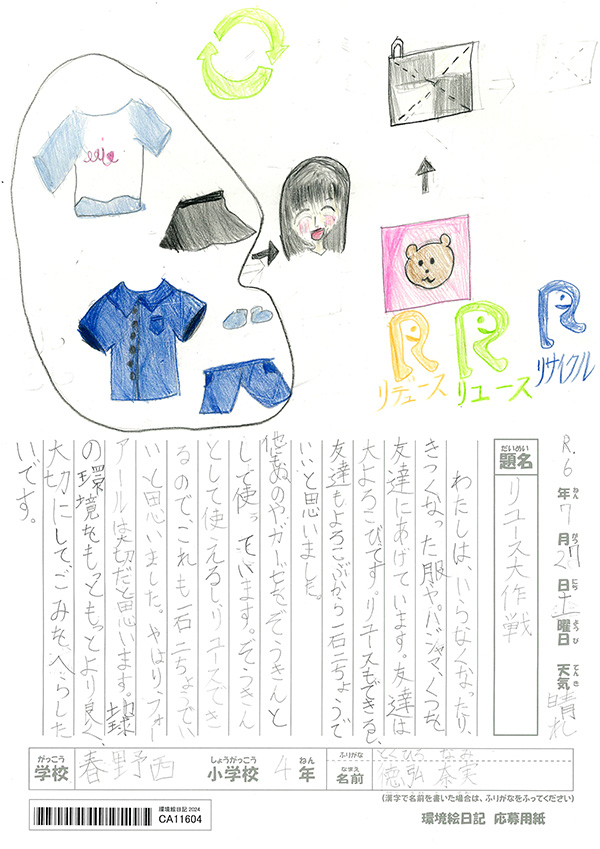 リデュース
リユース
リサイクル
R.6年7月27日土曜日 天気 晴れ
題名 リユース大作戦
わたしは、いらなくなったり、
きつくなった服やパジャマ、くつを
友達にあげています。友達は
大よろこびです。リユースもできるし、
友達もよろこぶから一石二ちょうで
いいと思いました。
ぬのやガーゼをぞうきんと
して使っています。ぞうきん
として使えるし、リユースでき
るので、これも一石二ちょうでい
いと思いました。やはり、フォー
アールは大切だと思います。地球
の環境をもっともっとより良く、
大切にしてごみをへらした
いです。
学校 春野西 小学校 4年
ふりがな とくひろ なみ
名前 徳弘 奈実
(漢字で名前を書いた場合は、ふりがなをふってください)
環境絵日記 2024
CA11604
環境絵日記 応募用紙